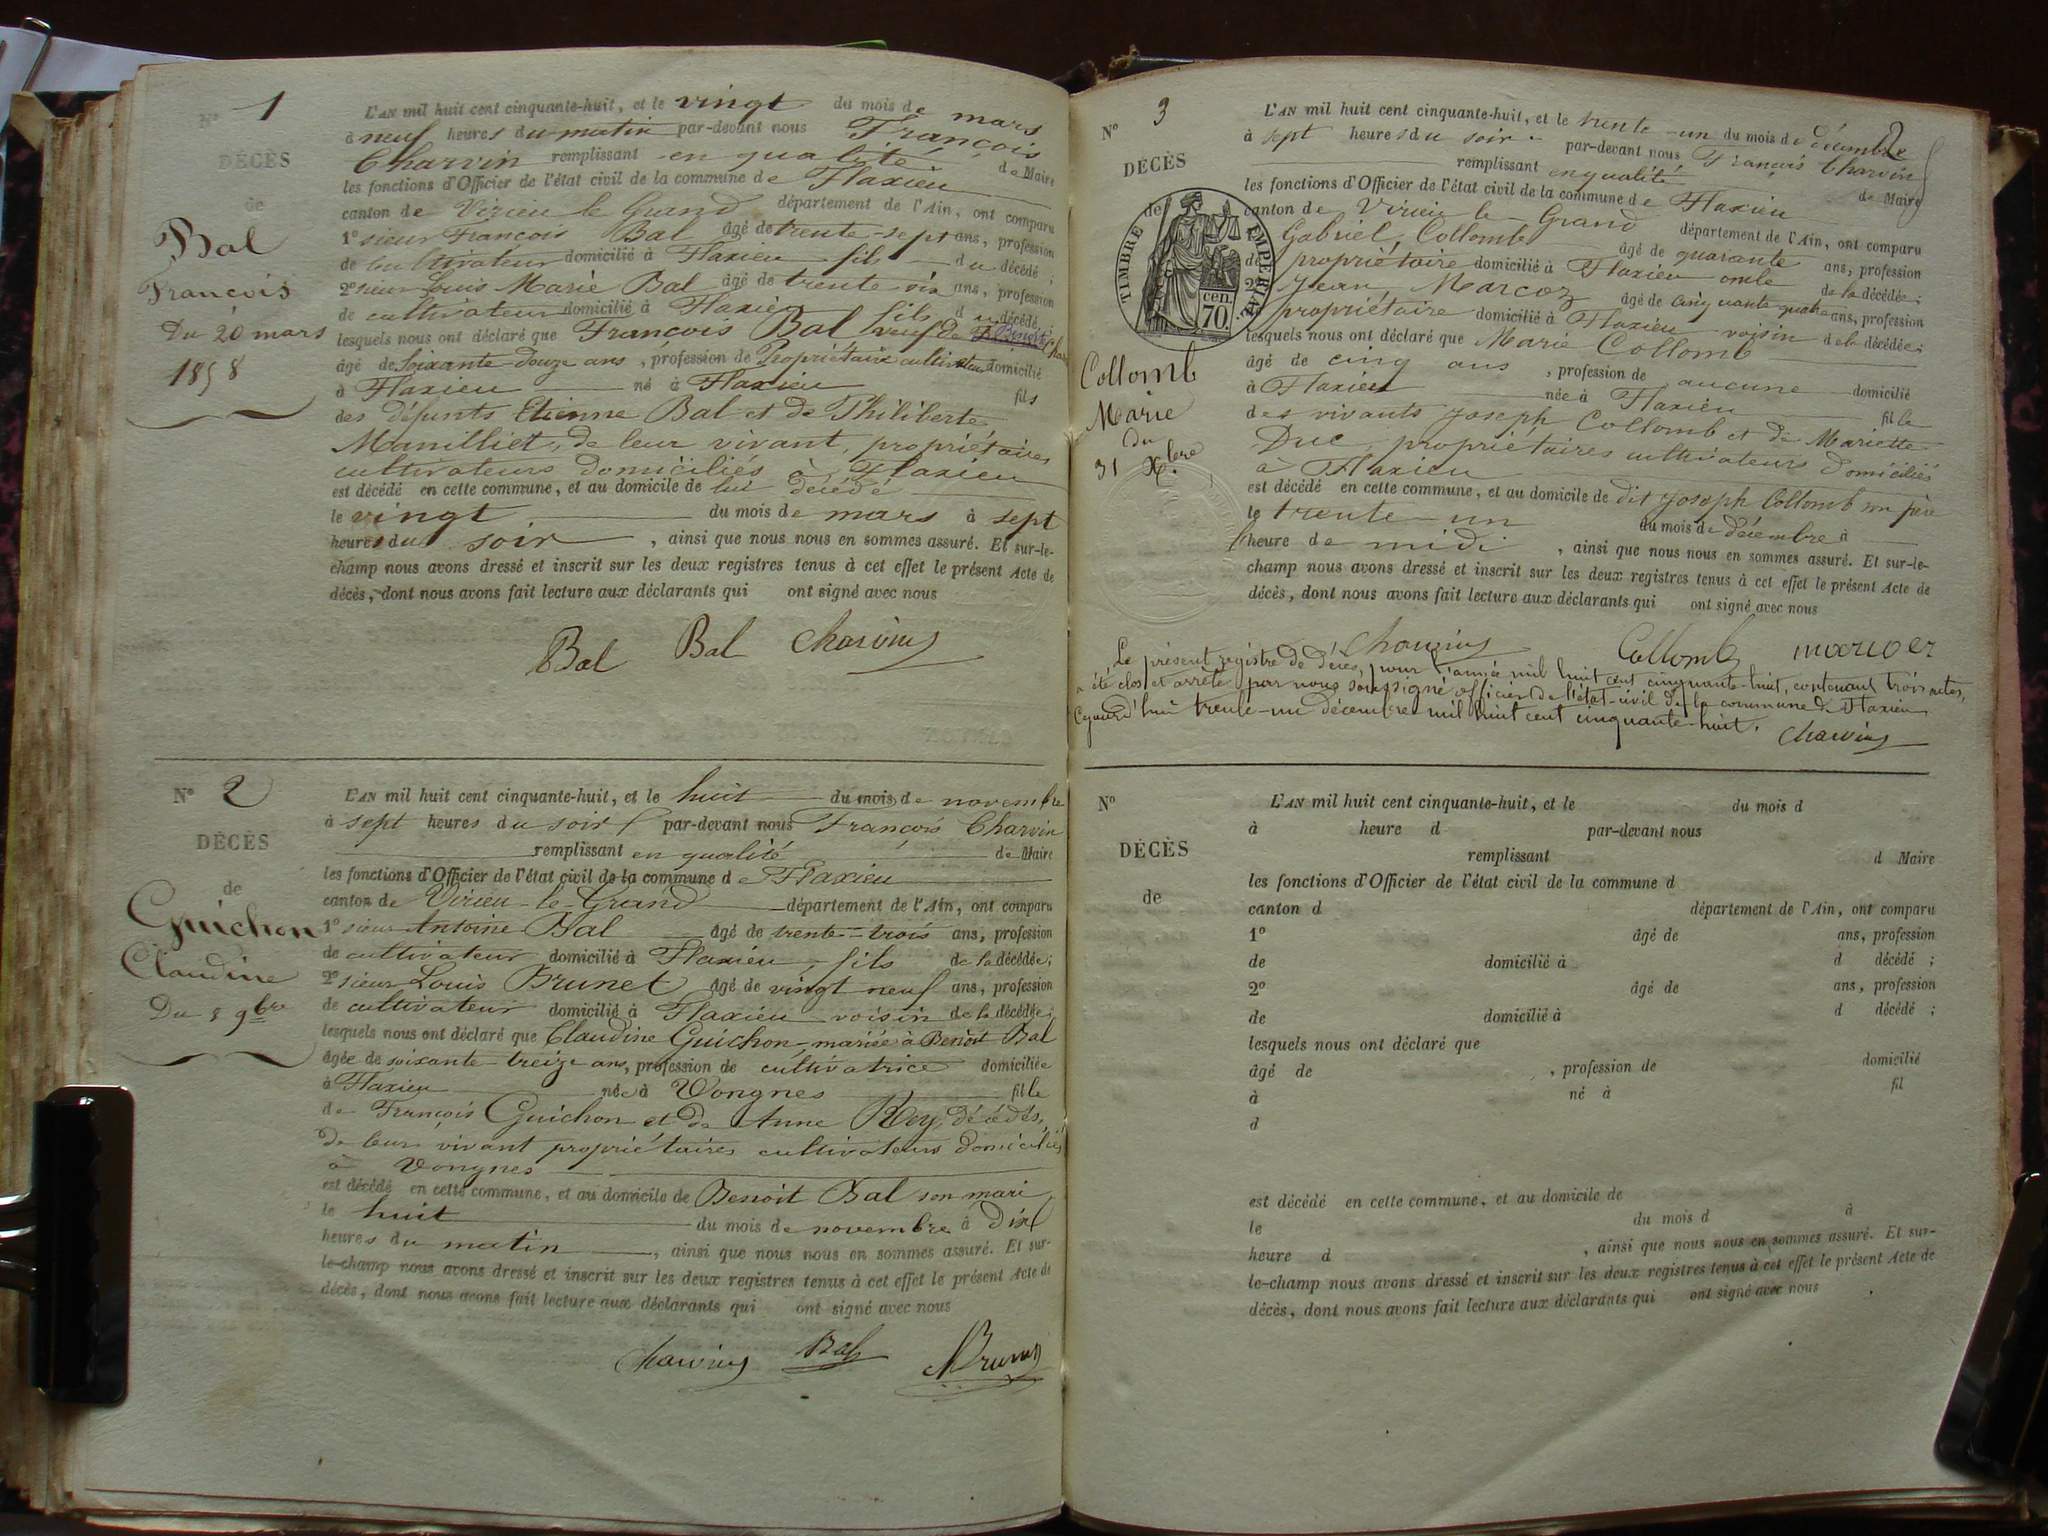 N° 1
DÉCÈS
de
Bal
François
Du 20 mars
1858
L'AN mil huit cent cinquante-huit, et le vingt du mois de mars
à neuf heures du matin par-devant nous François
Charvin remplissant en qualité de Maire
les fonctions d'Officier de l'état civil de la commune de Flaxieu
canton de Virieu le Grand département de l'Ain, ont comparu
1° sieur François Bal âgé de trente-sept ans, profession
de cultivateur domicilié à Flaxieu fils du décédé ;
2° sieur Louis Marie Bal âgé de trente six ans, profession
de cultivateur domicilié à Flaxieu fils du décédé ;
lesquels nous ont déclaré que François Bal veuf de
âgé de Soixante douze ans, profession de Propriétaire cultivateur domicilié
à Flaxieu né à Flaxieu fils
des défunts Etienne Bal et de Philiberte
Mamilliet, de leur vivant, propriétaires
cultivateurs domiciliés à Flaxieu
est décédé en cette commune, et au domicile de lui décédé
le vingt du mois de mars à sept
heures du soir, ainsi que nous nous en sommes assuré. Et sur-le-
champ nous avons dressé et inscrit sur les deux registres tenus à cet effet le présent Acte de
décès, dont nous avons fait lecture aux déclarants qui ont signé avec nous
Bal Bal Charvin
N° 2
DÉCÈS
de
Guichon
Claudine
Du 8 9bre
L'AN mil huit cent cinquante-huit, et le huit du mois de novembre
à sept heures du soir par-devant nous François Charvin
remplissant en qualité de Maire
les fonctions d'Officier de l'état civil de la commune de Flaxieu
canton de Virieu-le-Grand département de l'Ain, ont comparu
1° sieur Antoine Bal âgé de trente-trois ans, profession
de cultivateur domicilié à Flaxieu, fils de la décédée ;
2° sieur Louis Brunet âgé de vingt neuf ans, profession
de cultivateur domicilié à Flaxieu voisin de la décédée ;
lesquels nous ont déclaré que Claudine Guichon mariée à Benoit Bal
âgée de soixante-treize ans, profession de cultivatrice domiciliée
à Flaxieu née à Vongnes fille
de François Guichon et de Anne Rey, décédés,
de leur vivant propriétaires cultivateurs domiciliés
à Vongnes
est décédé en cette commune, et au domicile de Benoit Bal son mari
le huit du mois de novembre à dix
heures du matin, ainsi que nous nous en sommes assuré. Et sur-
le-champ nous avons dressé et inscrit sur les deux registres tenus à cet effet le présent Acte de
décès, dont nous avons fait lecture aux déclarants qui ont signé avec nous
Charvin Bal Brunet
2
N° 3
DÉCÈS
de
TIMBRE IMPERIAL
70 cen.
Collomb
Marie
du
31 Xbre
L'AN mil huit cent cinquante-huit, et le trente-un du mois de décembre
à sept heures du soir par-devant nous François Charvin
remplissant en qualité de Maire
les fonctions d'Officier de l'état civil de la commune de Flaxieu
canton de Virieu le Grand département de l'Ain, ont comparu
Gabriel Collomb âgé de quarante ans, profession
de propriétaire domicilié à Flaxieu oncle de la décédée ;
2° Jean Marcoz âgé de cinquante quatre ans, profession
propriétaire domicilié à Flaxieu voisin de la décédée ;
lesquels nous ont déclaré que Marie Collomb
âgé de cinq ans, profession de aucune domicilié
à Flaxieu née à Flaxieu fille
des vivants Joseph Collomb et de Mariette
Duc, propriétaires cultivateurs domiciliés
à Flaxieu
est décédé en cette commune, et au domicile de dit Joseph Collomb son père
le trente-un du mois de décembre à
heure de midi, ainsi que nous nous en sommes assuré. Et sur-le-
champ nous avons dressé et inscrit sur les deux registres tenus à cet effet le présent Acte de
décès, dont nous avons fait lecture aux déclarants qui ont signé avec nous
Charvin Collomb marcoz
Le présent registre de décès, pour l'année mil huit cent cinquante-huit, contenant trois actes,
a été clos et arrêté par nous soussigné officier de l'état-civil de la commune de Flaxieu
Cejourd'hui trente-un décembre mil huit cent cinquante-huit.
Charvin
N°
DÉCÈS
de
L'AN mil huit cent cinquante-huit, et le du mois d
à heure d par-devant nous
remplissant d Maire
les fonctions d'Officier de l'état civil de la commune d
canton d département de l'Ain, ont comparu
1° âgé de ans, profession
de domicilié à d décédé ;
2° âgé de ans, profession
de domicilié à d décédé ;
lesquels nous ont déclaré que
âgé de , profession de domicilié
à né à fil
d
est décédé en cette commune, et au domicile de
le du mois d à
heure d , ainsi que nous nous en sommes assuré. Et sur-
le-champ nous avons dressé et inscrit sur les deux registres tenus à cet effet le présent Acte de
décès, dont nous avons fait lecture aux déclarants qui ont signé avec nous